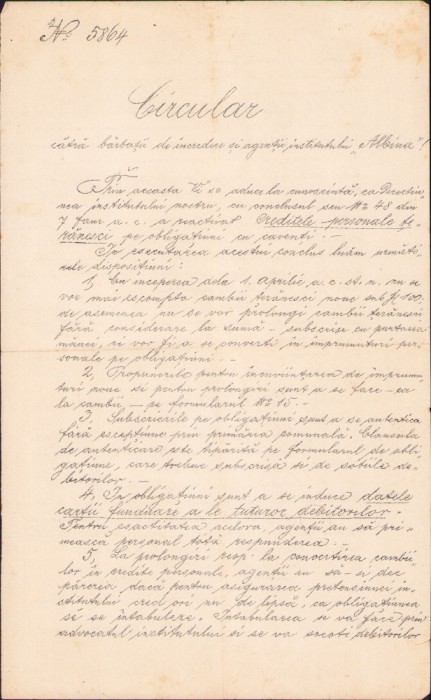 № 5864
Circular
cătră bărbații de încredere și agenții institutului "Albina"!
Prin aceasta Vi se aduce la cunoscință, ca Direcțiu-
nea institutului nostru, cu conclusul seu № 48 din
7 Ianr a. c. a reactivat Creditele personale țe-
rănesci pe obligațiuni cu cavenți. –
In esecutarea acestui conclus luăm următo-
riele disposițiuni:
1. Cu începerea dela 1. Aprilie a. c. st. n. nu se
vor mai escompta cambii țerănesci noue sub fl 100,
de asemenea nu se vor prolongi cambii țerănesci
fără considerare la sumă – subscrise cu punerea
mânei, ci vor fi a se converti în împrumuturi per-
sonale pe obligațiuni. –
2. Propunerile pentru încuviințarea de împrumu-
turi noue și pentru prolongiri sunt a se face – ca
la cambii – pe formularul № 15. –
3. Subscrierile pe obligațiuni sunt a se autentica
fără escepțiune prin primăria comunală. Clausula
de autenticare este tipărită pe formularul de obli-
gațiune, care trebue subscrisă și de soțiile de-
bitorilor. –
4. In obligațiuni sunt a se induce datele
cărții funduare a le tuturor debitorilor. –
Pentru esactitatea acelora, agenții au să pri-
mească personal totă respunderea. –
5. La prolongiri resp. la conv̦ertirea cambii-
lor în credite personale, agenții au să-și dee
părerea, dacă pentru asigurarea pretensiunei in-
stitutului cred ori nu de lipsă, ca obligațiunea
să se intabuleze. Intabularea se va face prin
advocatul institutului și se va socoti debitorilor